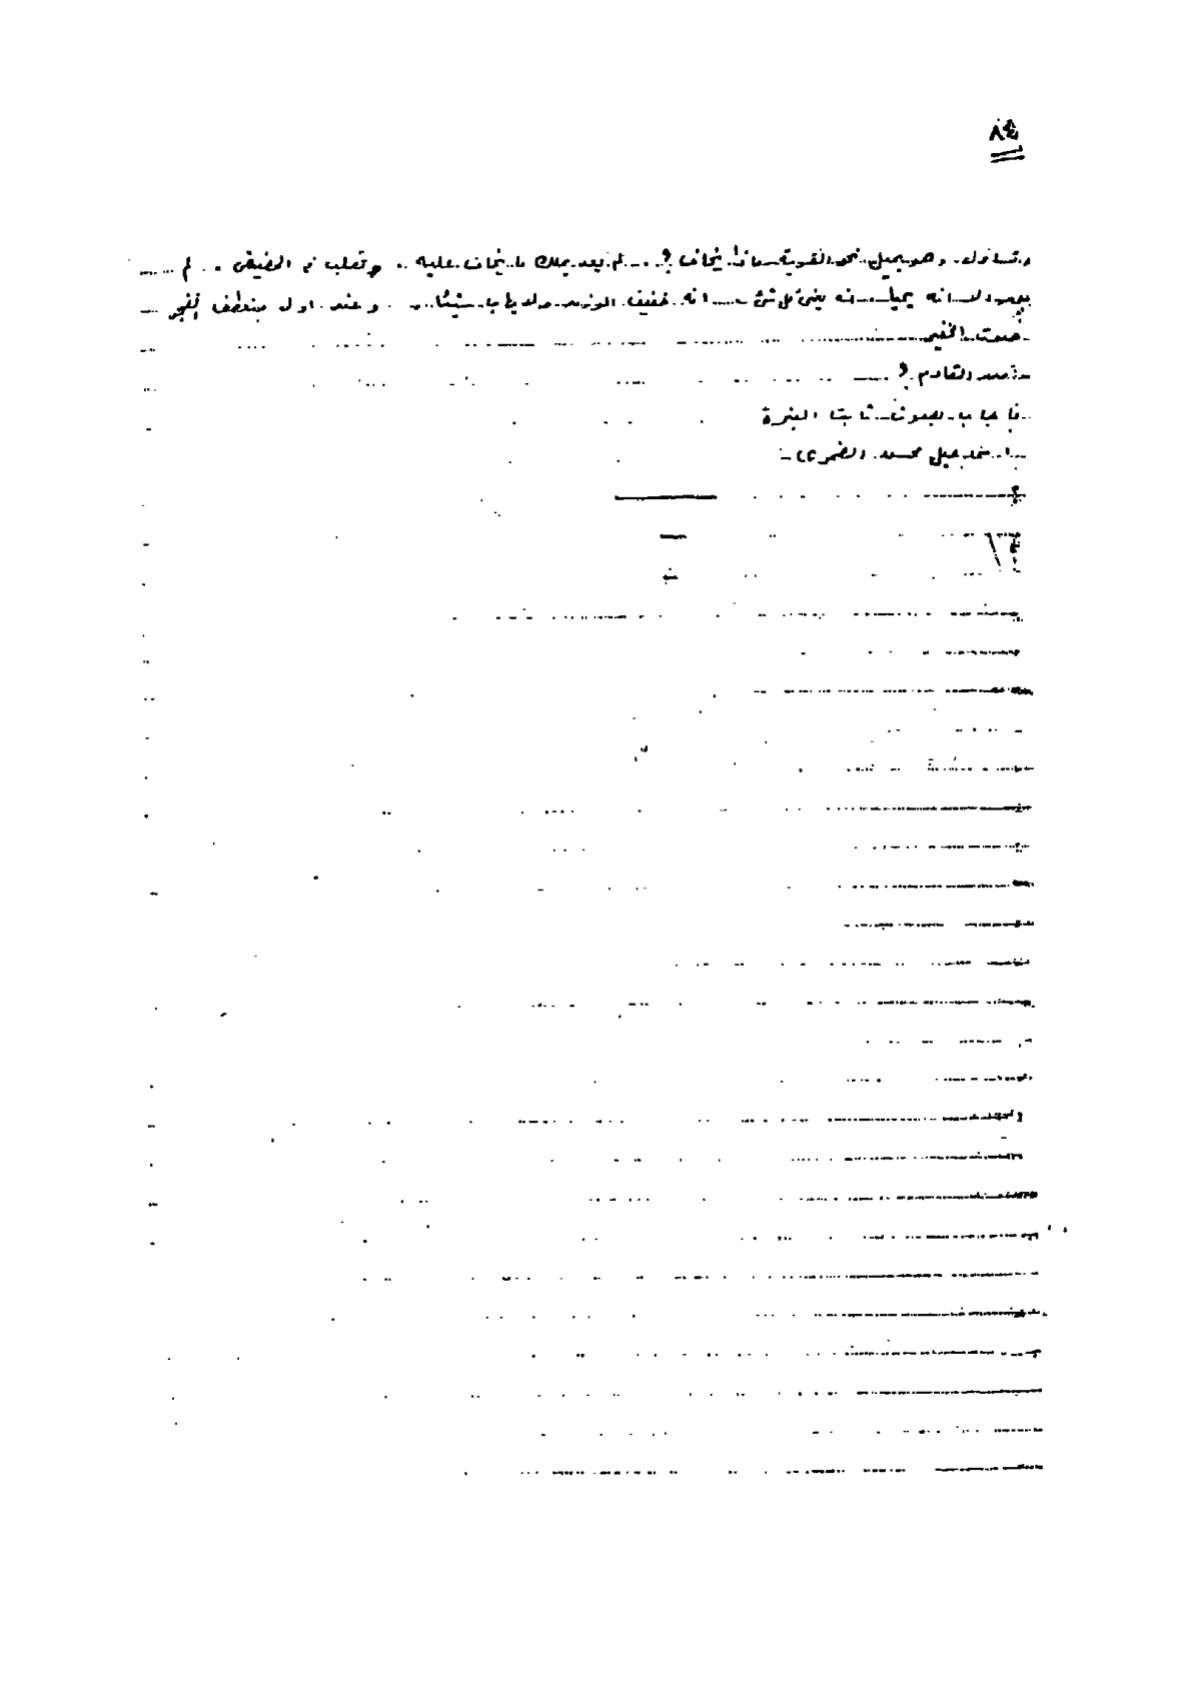 ٨٤
وتساءل وهو يميل نحو القرية ماذا يخاف ؟ .. لم يعد يملك ما يخاف عليه .. وتصلب في الحقيقي .. لم
يعد الا انه يحيا .. انه يعي كل شئ .. انه خفيف الوزن ولا يهاب شيئا .. وعند اول منعطف الفجر
صوت الخفير
- من القادم ؟
فأجاب بصوت ثابت النبرة
- اسماعيل محمد الضمري -